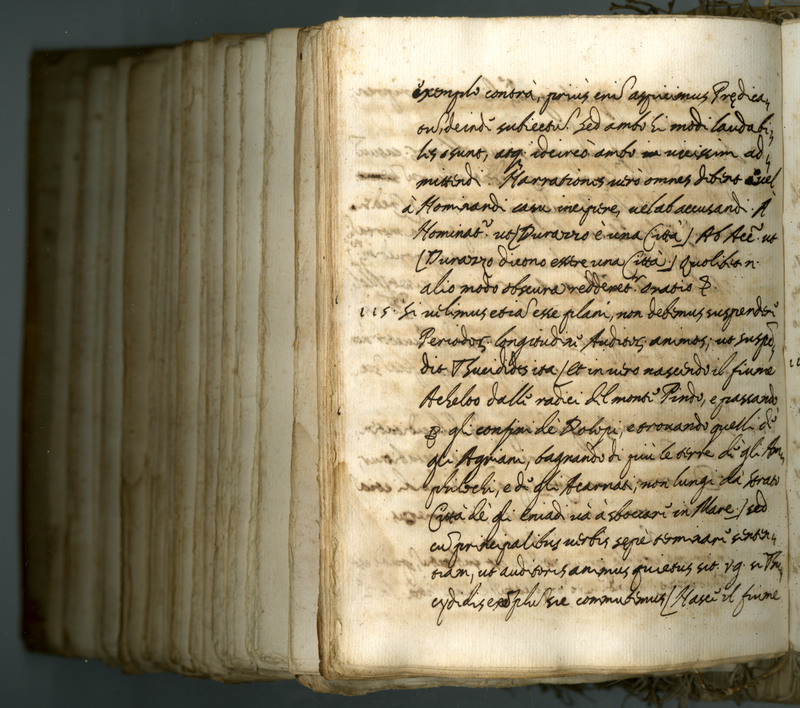 exemplo contrà, priùs eni aspicimus Prędica,,
tu, deindè subiectu. Sed ambo hi modi laudabi,,
les sunt, atq. idcircò ambo in uicissim ad,,
mittendi. Narrationes uerò omnes debent uel
à Nominandi casu incipere, uel ab accusandi. A
Nominat. ut (Durazzo è una Città) Ab Acc. ut
(Durazzo dicono essere una Città.) Quolibet n.
alio modo obscura redderet oratio
115. Si uelimus etia esse plani, non debemus suspendere
Periodor. longitudine Auditor. animos; ut suspē,,
dit Thucidides ita (Et in uero nascendo il fiume
Acheloo dalle radici del monte Pindo, e passando
p gli confini de Dolopi, e trouando quelli de
gli Agriani, bagnando di più le terre de gli Am,,
philochi, e de gli Acarnati, non lungi da Strato
Città de gli Eniadi uà à sboccare in Mare.) sed
cu principalibus uerbis sepè terminare senten,,
tiam, ut auditoris animus quietus sit. vg. si Thu,,
cydidis exēplu sic commutemus (Nasce il fiume